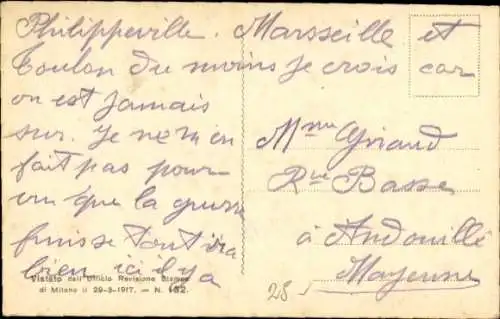 Philippeville. Marsseille et
Toulon du moins je crois car
on est jamais
sur. Je ne m'en
fait pas pour-
vu que la guerre
finisse tout ira
bien, ici il y a
Mme Giraud
Rue Basse
à Andouillé
Mayenne
Vistato dall'Ufficio Revisione Stampa
di Milano il 29-3-1917. — N. 182.
28